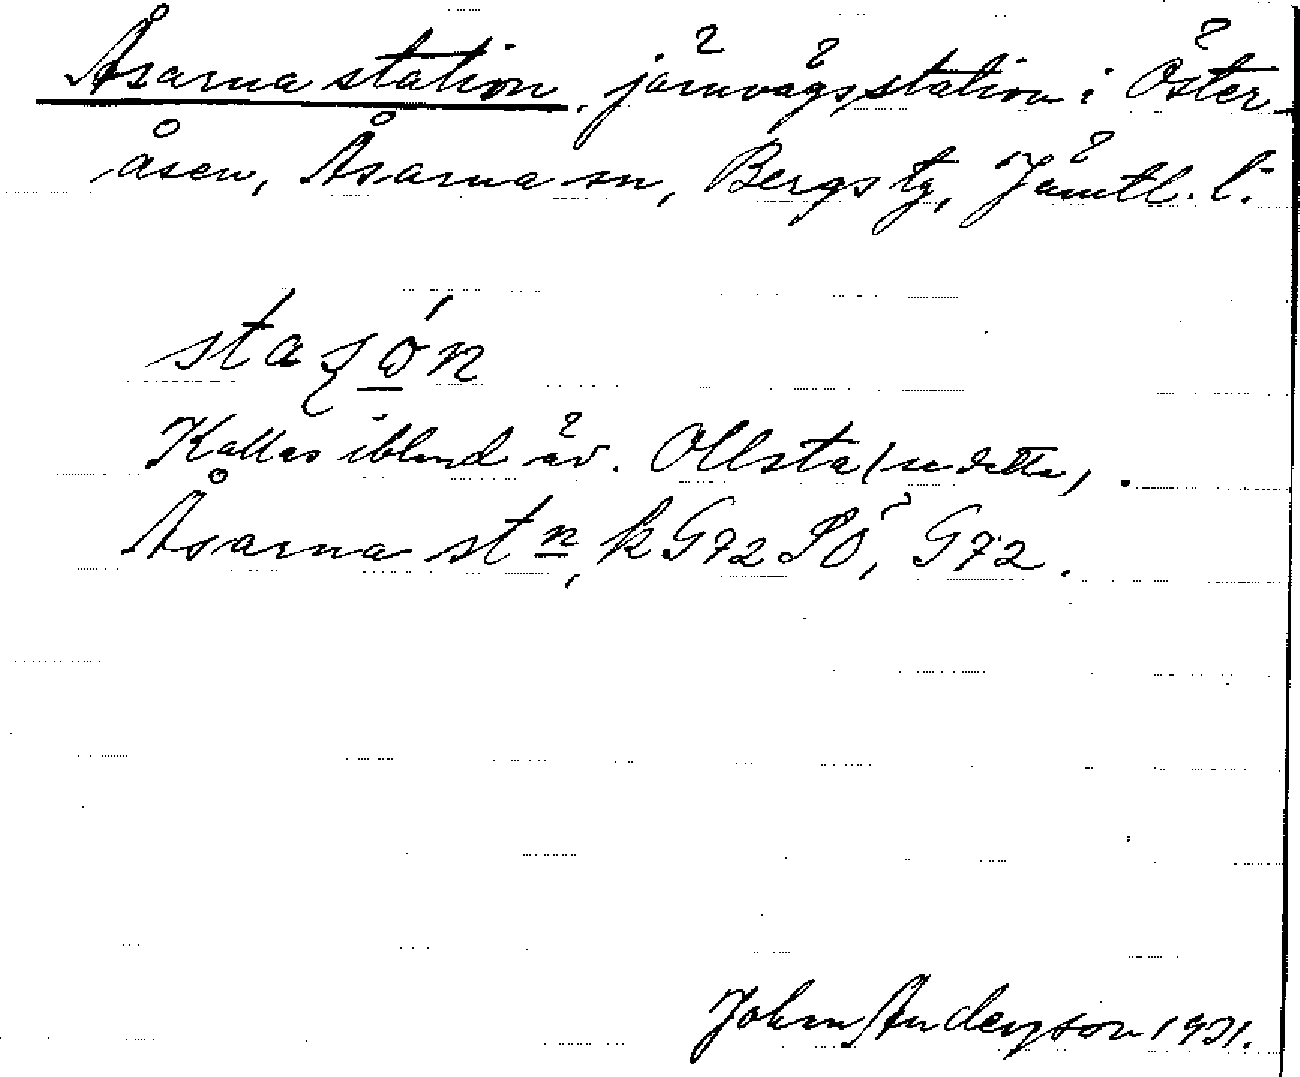 Åsarna station, järnvägsstation i Öster-
åsen, Åsarna sn, Bergs tg, Jämtl. l.
staʃώn
Kallas ibland äv. Ollsta (se detta).
Åsarna stn, k G72SÖ, G72.
John Andersson 1931.